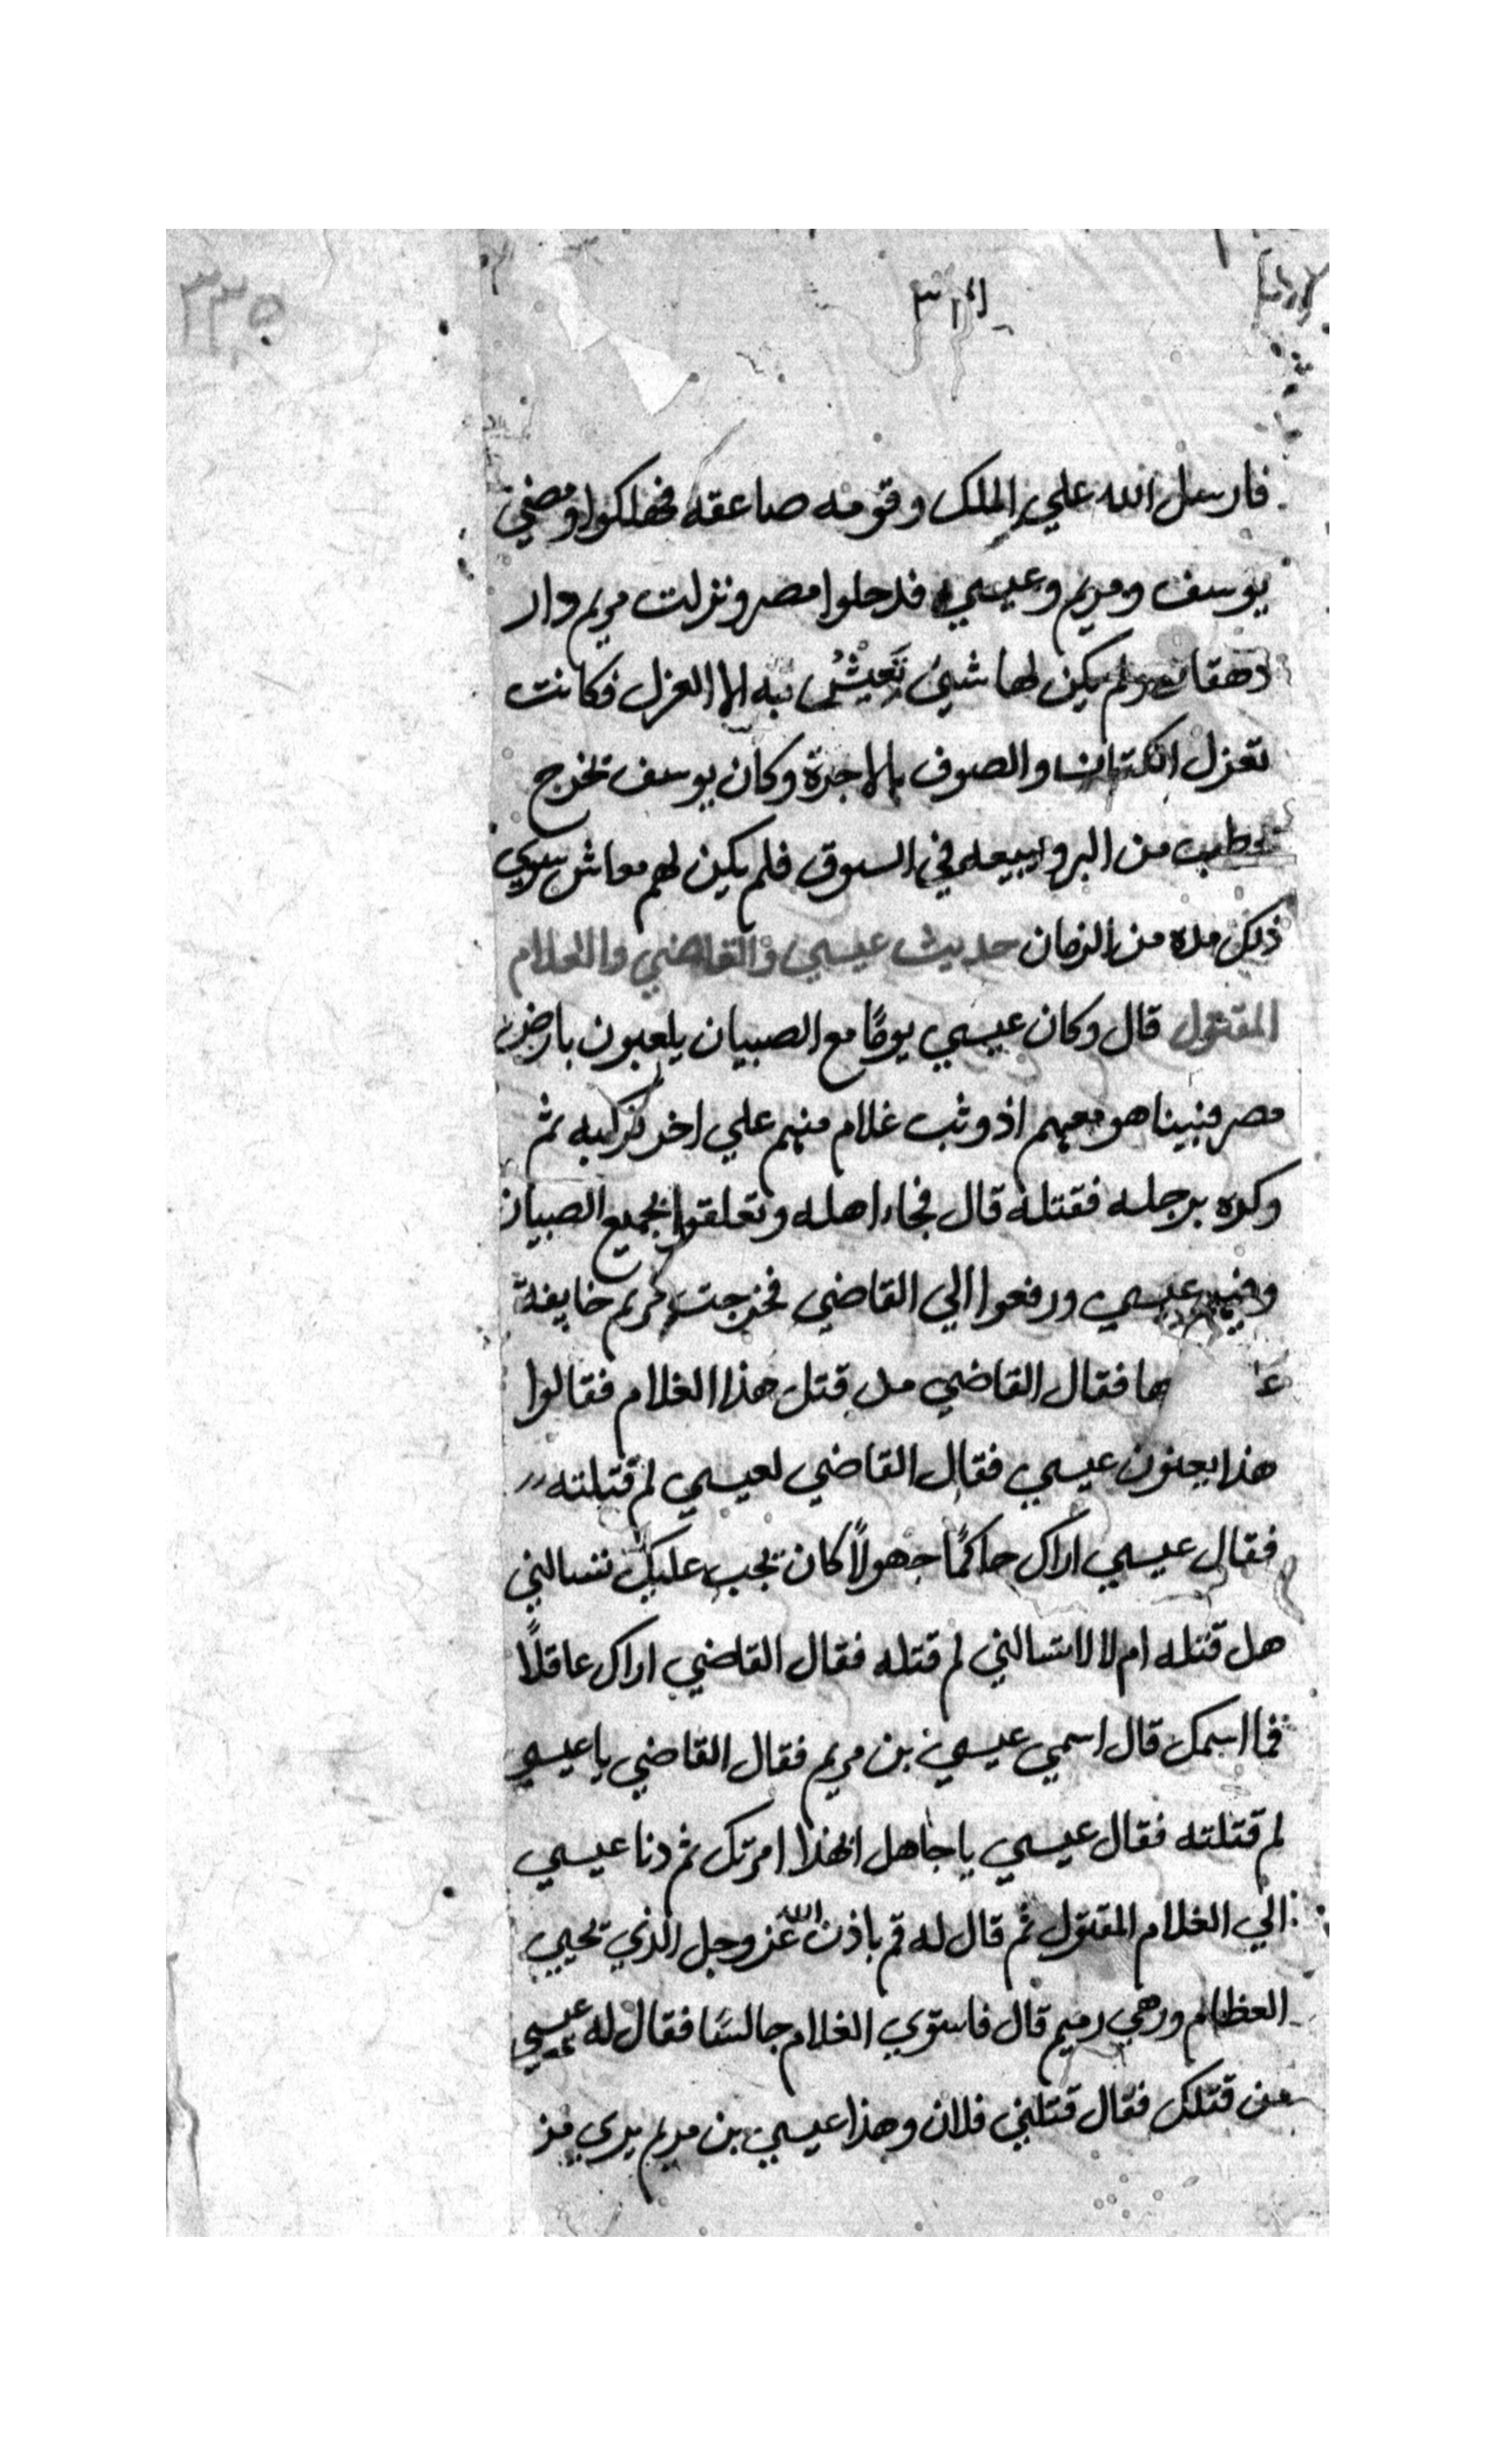 ٣٣٥
فارسل الله علي الملك وقومه صاعقه فهلكوا ومضي
يوسف ومريم وعيسي فدخلوا مصر ونزلت مريم دار
دهقان ولم يكن لها شيئ تَعِيشُ به الا الغزل فكانت
تغزل الكتان والصوف بالاجرة وكان يوسف يخرج
يحطب من البر ويبيعه في السوق فلم يكن لهم معاش سوي
ذلك مده من الزمان حديث عيسي والقاضي والغلام
المقتول قال وكان عيسي يومًا مع الصبيان يلعبون بارض
مصر فبينا هو معهم اذ وثب غلام منهم علي اخر فركبه ثم
وكده برجله فقتله قال فجاء اهله وتعلقوا بجميع الصبيان
وفيهم عيسي ورفعوا الي القاضي فخرجت مريم خايفة
فقال القاضي من قتل هذا الغلام فقالوا
هذا يعنون عيسي فقال القاضي لعيسي لم قتلته
فقال عيسي اراك حاكمًا جهولاً كان يجب عليك تسالني
هل قتله ام لا لا تسالني لم قتله فقال القاضي اراك عاقلاً
فما اسمك قال اسمي عيسي بن مريم فقال القاضي يا عيسي
لم قتلته فقال عيسي يا جاهل الهذا امرتك ثم دنا عيسي
الي الغلام المقتول ثم قال له قم باذن الله عز وجل الذي يحيي
العظام وهي رميم قال فاستوي الغلام جالسًا فقال له عيسي
من قتلك فقال قتلني فلان وهذا عيسي بن مريم بري من